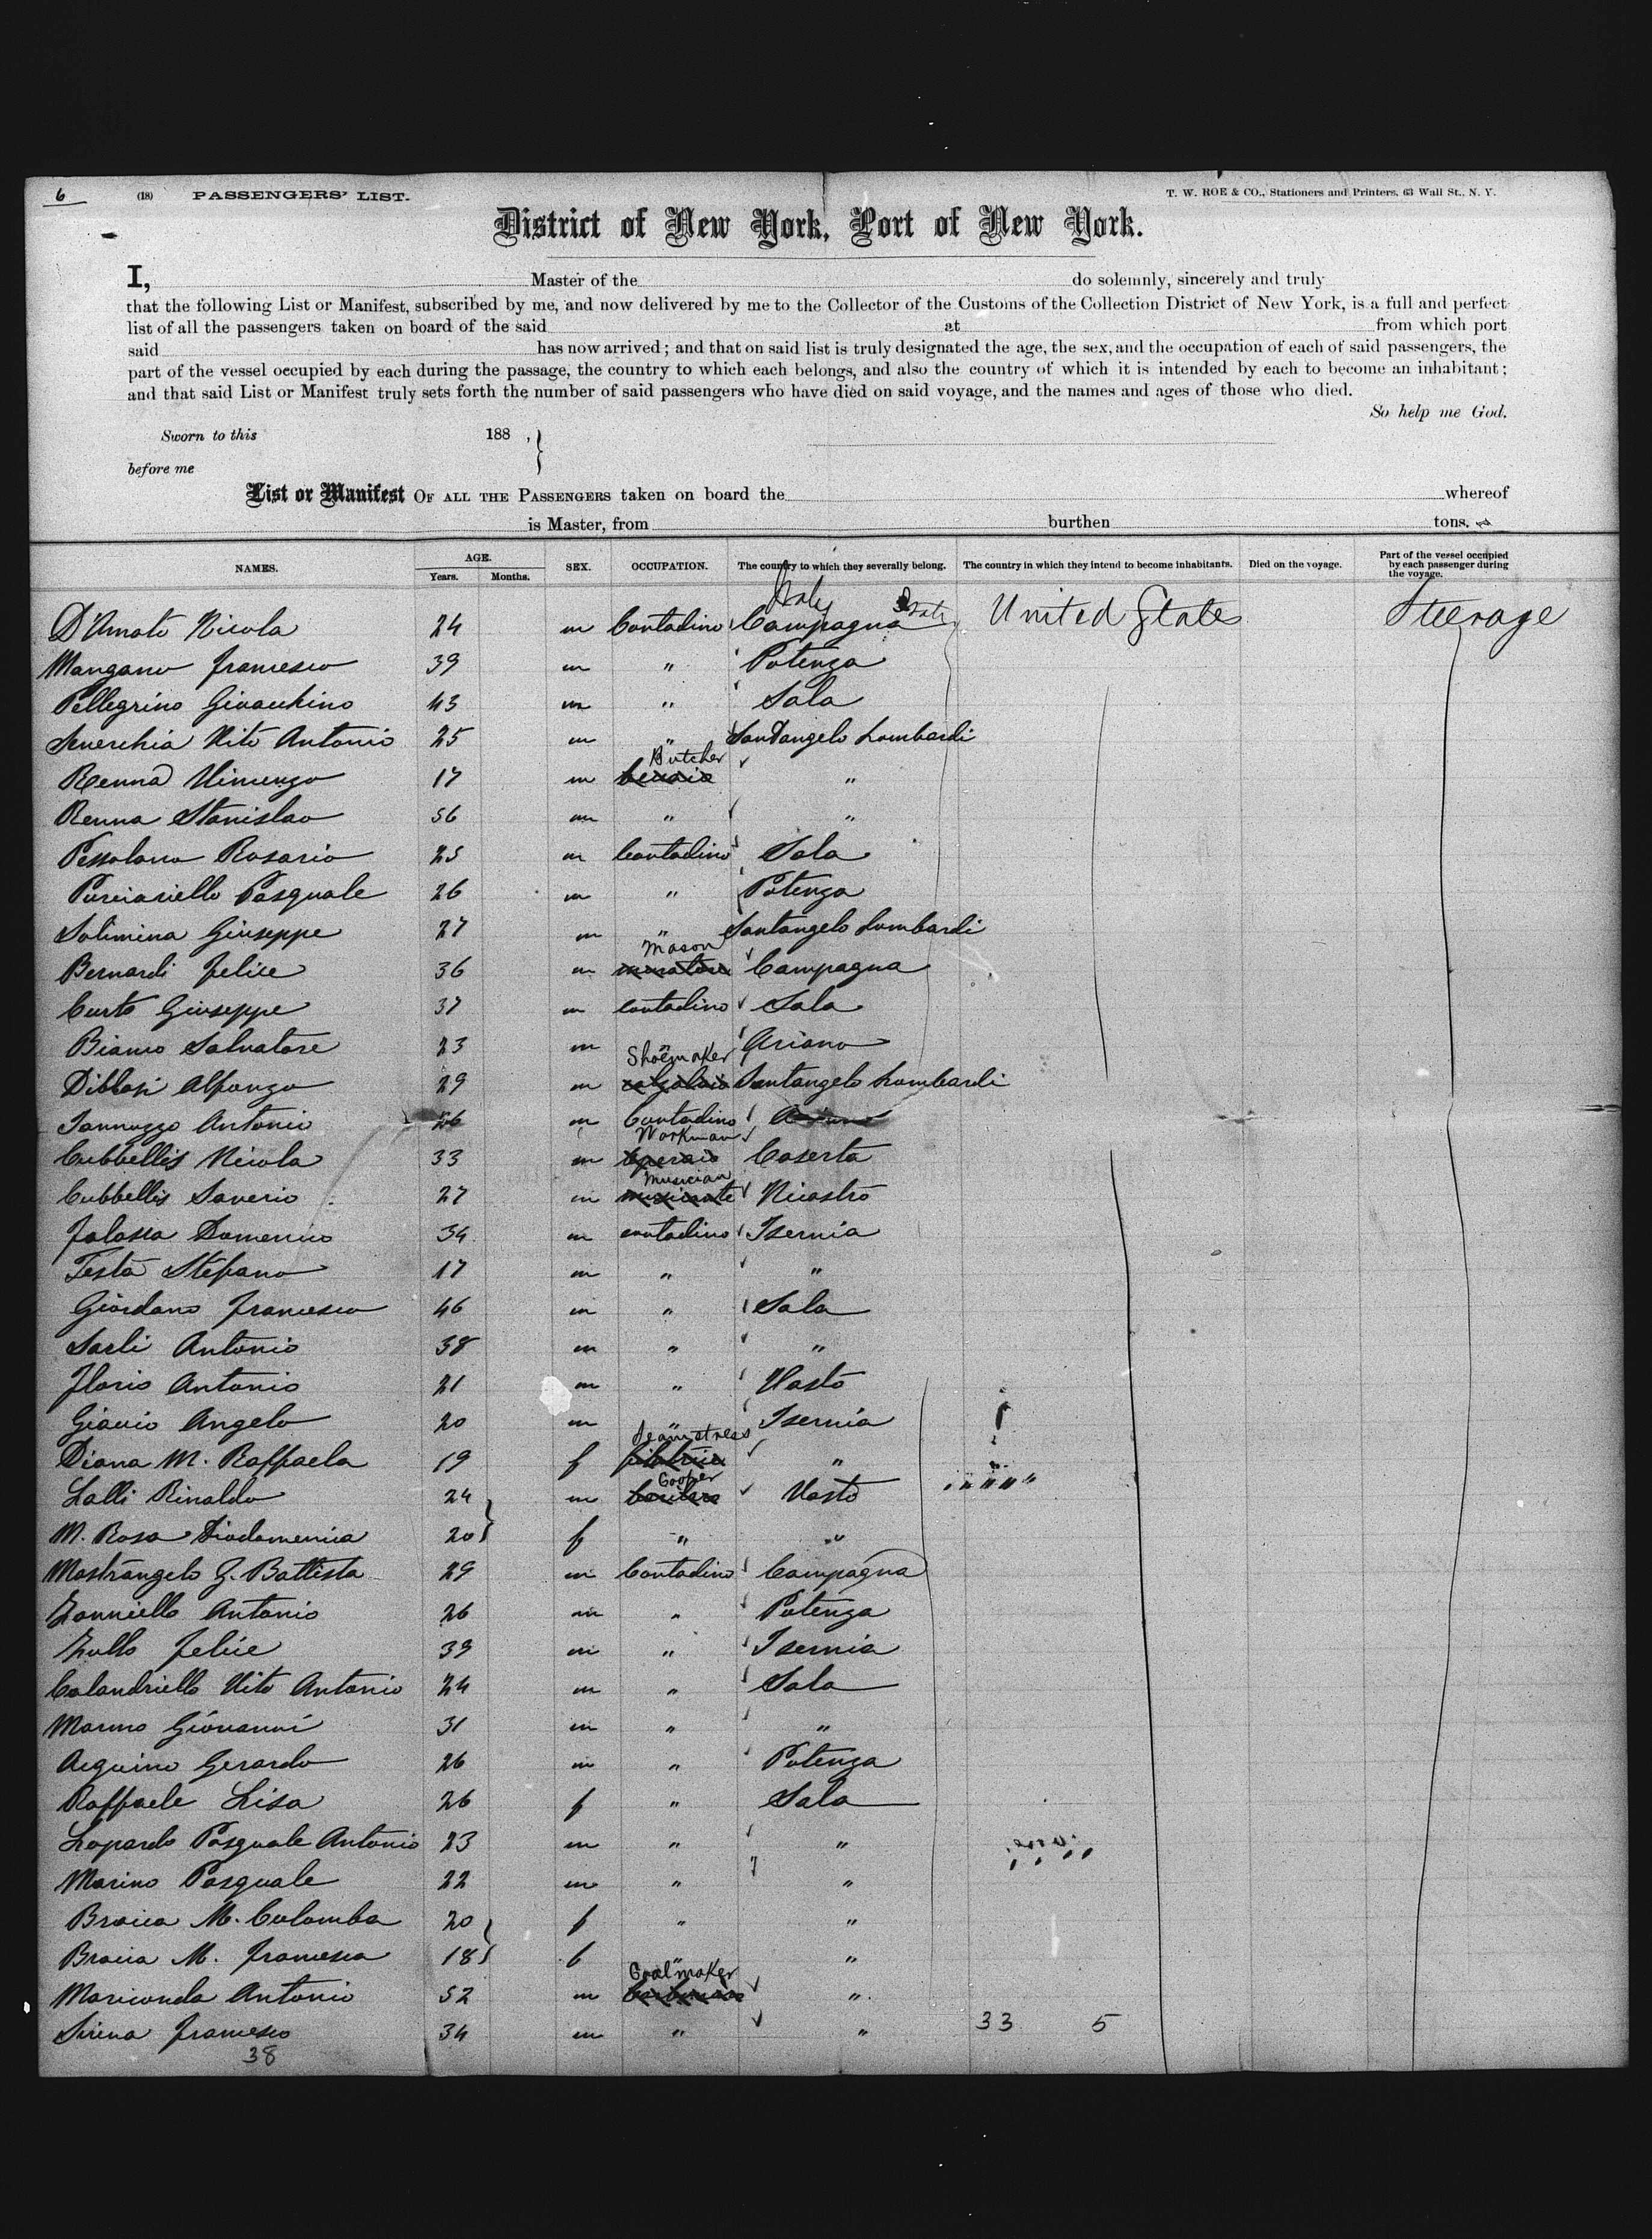 6 (18) PASSENGERS' LIST. T. W. ROE & CO., Stationers and Printers, 63 Wall St., N. Y.
District of New York, Port of New York.
I, Master of the do solemnly, sincerely and truly
that the following List or Manifest, subscribed by me, and now delivered by me to the Collector of the Customs of the Collection District of New York, is a full and perfect
list of all the passengers taken on board of the said at from which port
said has now arrived; and that on said list is truly designated the age, the sex, and the occupation of each of said passengers, the
part of the vessel occupied by each during the passage, the country to which each belongs, and also the country of which it is intended by each to become an inhabitant;
and that said List or Manifest truly sets forth the number of said passengers who have died on said voyage, and the names and ages of those who died.
So help me God.
Sworn to this 188 ,
before me
List or Manifest OF ALL THE PASSENGERS taken on board the whereof
is Master, from burthen tons.
NAMES. AGE. Years. Months. SEX. OCCUPATION. The country to which they severally belong. The country in which they intend to become inhabitants. Died on the voyage. Part of the vessel occupied by each passenger during the voyage.
Italy
D'Amato Nicola 24 m Contadino Campagna Italy United States Steerage
Mangano Francesco 39 m " Potenza
Pellegrino Gioacchino 43 m " Sala
Senerchia Vito Antonio 25 m " Santangelo Lombardi
Butcher
Renna Vincenzo 17 m "
Renna Stanislao 56 m " "
Pessolano Rosario 25 m Contadino Sala
Porciariello Pasquale 26 m " Potenza
Solimina Giuseppe 27 m " Santangelo Lombardi
Mason
Bernardi Felice 36 m muratore Campagna
Curto Giuseppe 37 m contadino Sala
Bianco Salvatore 23 m " Ariano
Shoemaker
Diblasi Alfonzo 29 m calzolaio Santangelo Lombardi
Iannuzzo Antonio 26 m Contadino
Workman
Cubbellis Nicola 33 m operaio Caserta
Musician
Cubbellis Saverio 27 m musicante Nicastro
Falassa Domenico 34 m contadino Isernia
Testa Stefano 17 m " "
Giordano Francesco 46 m " Sala
Sarli Antonio 38 m " "
Florio Antonio 21 m " Vasto
Giancio Angelo 20 m " Isernia
Seamstress
Diana M. Raffaela 19 f "
Cooper
Lalli Rinaldo 24 m Vasto
M. Rosa Diodomenica 20 f " "
Mastrangelo G. Battista 29 m Contadino Campagna
Zanniello Antonio 26 m " Potenza
Zullo Felice 39 m " Isernia
Calandriello Vito Antonio 24 m " Sala
Marino Giovanni 31 m " "
Acquino Gerardo 26 m " Potenza
Raffaele Lisa 26 f " Sala
Lopardo Pasquale Antonio 23 m " "
Marino Pasquale 22 m " "
Bracca M. Colomba 20 f " "
Bracca M. Francesca 18 f " "
Coal maker
Mariconda Antonio 52 m "
Sirena Francesco 34 m " " 33 5
38